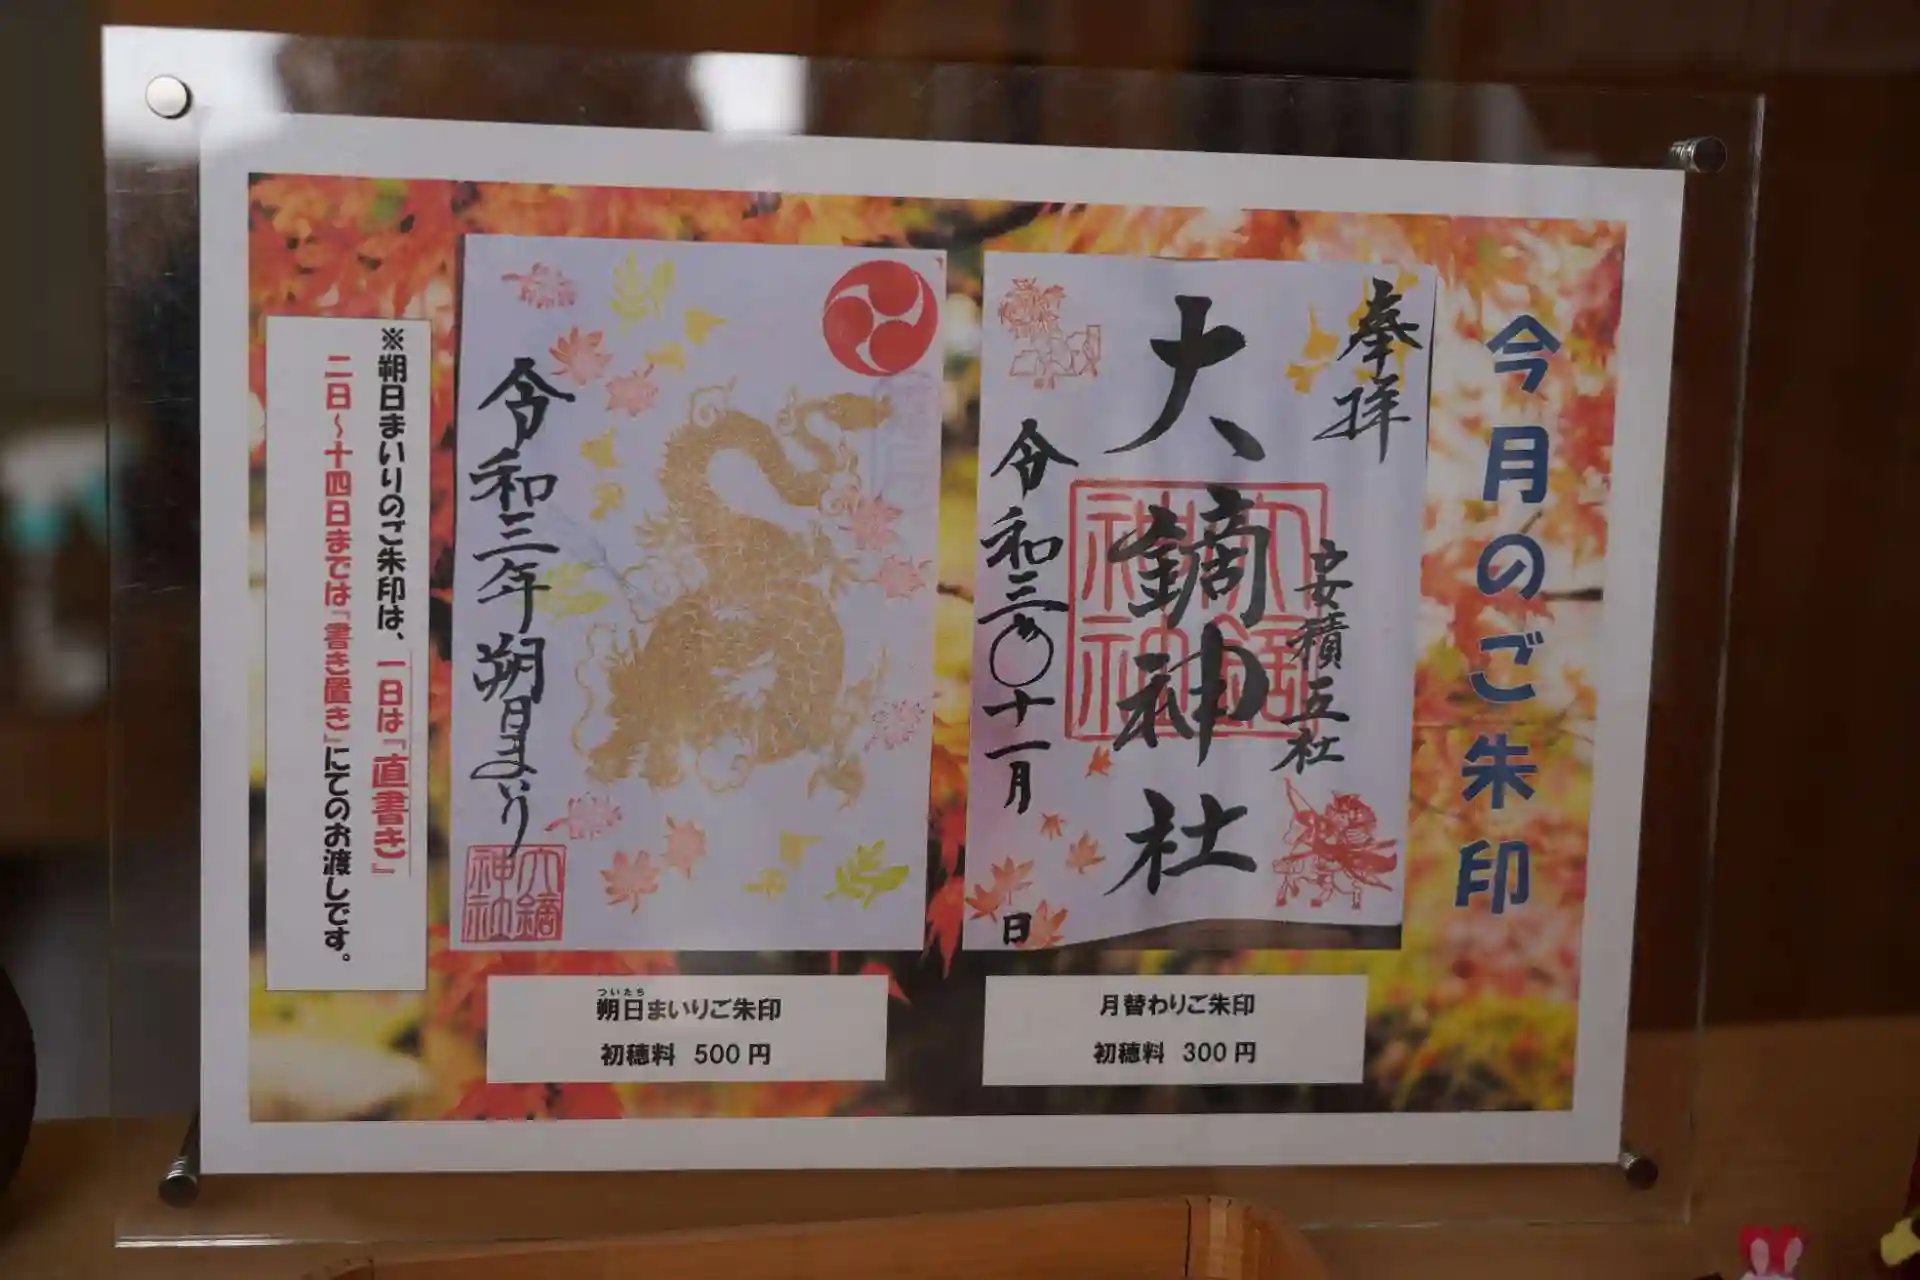 今月のご朱印
奉拝
安積三社
大鏑神社
令和三年十一月 日
令和三年朔日まいり
大鏑神社
※朔日まいりのご朱印は、一日は『直書き』
二日～十四日までは『書き置き』にてのお渡しです。
月替わりご朱印
初穂料 300円
ついたち
朔日まいりご朱印
初穂料 500円